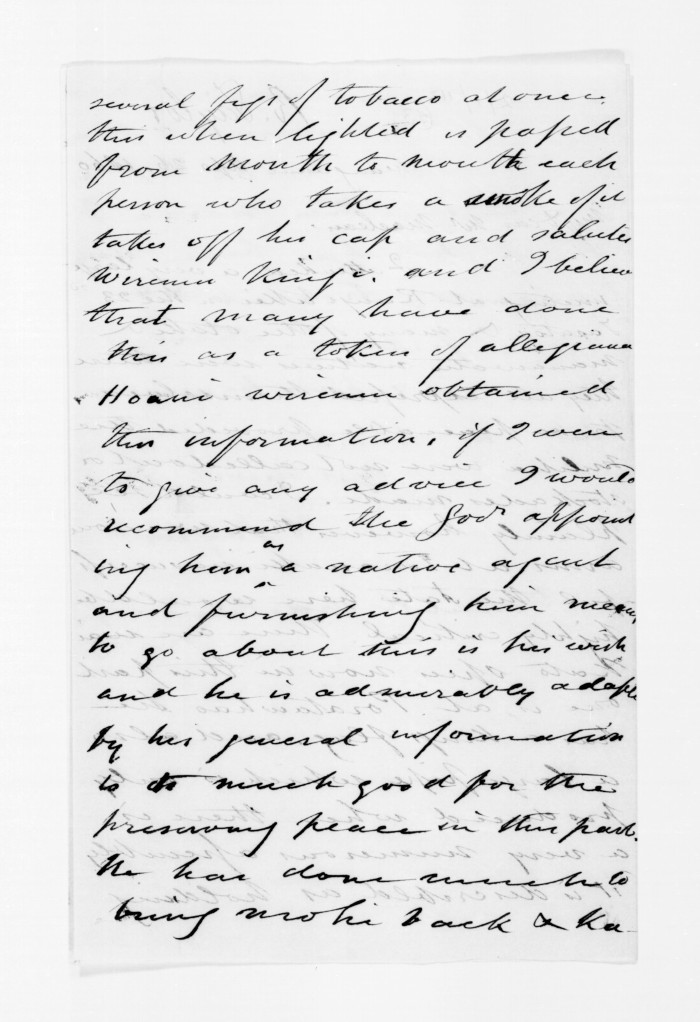 several figs of tobacco at once.
this when lighted is passed
from mouth to mouth each
person who takes a smoke of it
takes off his cap and salutes
Wiremu Kingi. and I believe
that many have done
this as a token of allegiance
Hoani wiremu obtained
this information, if I were
to give any advice I would
recommend the Govr appoint
ing him as a native agent
and furnishing him means
to go about this is his wish
and he is admirably adapted
by his general information
to do much good for the
preserving peace in this part.
He has done much to
bring Mohi back & Ka-